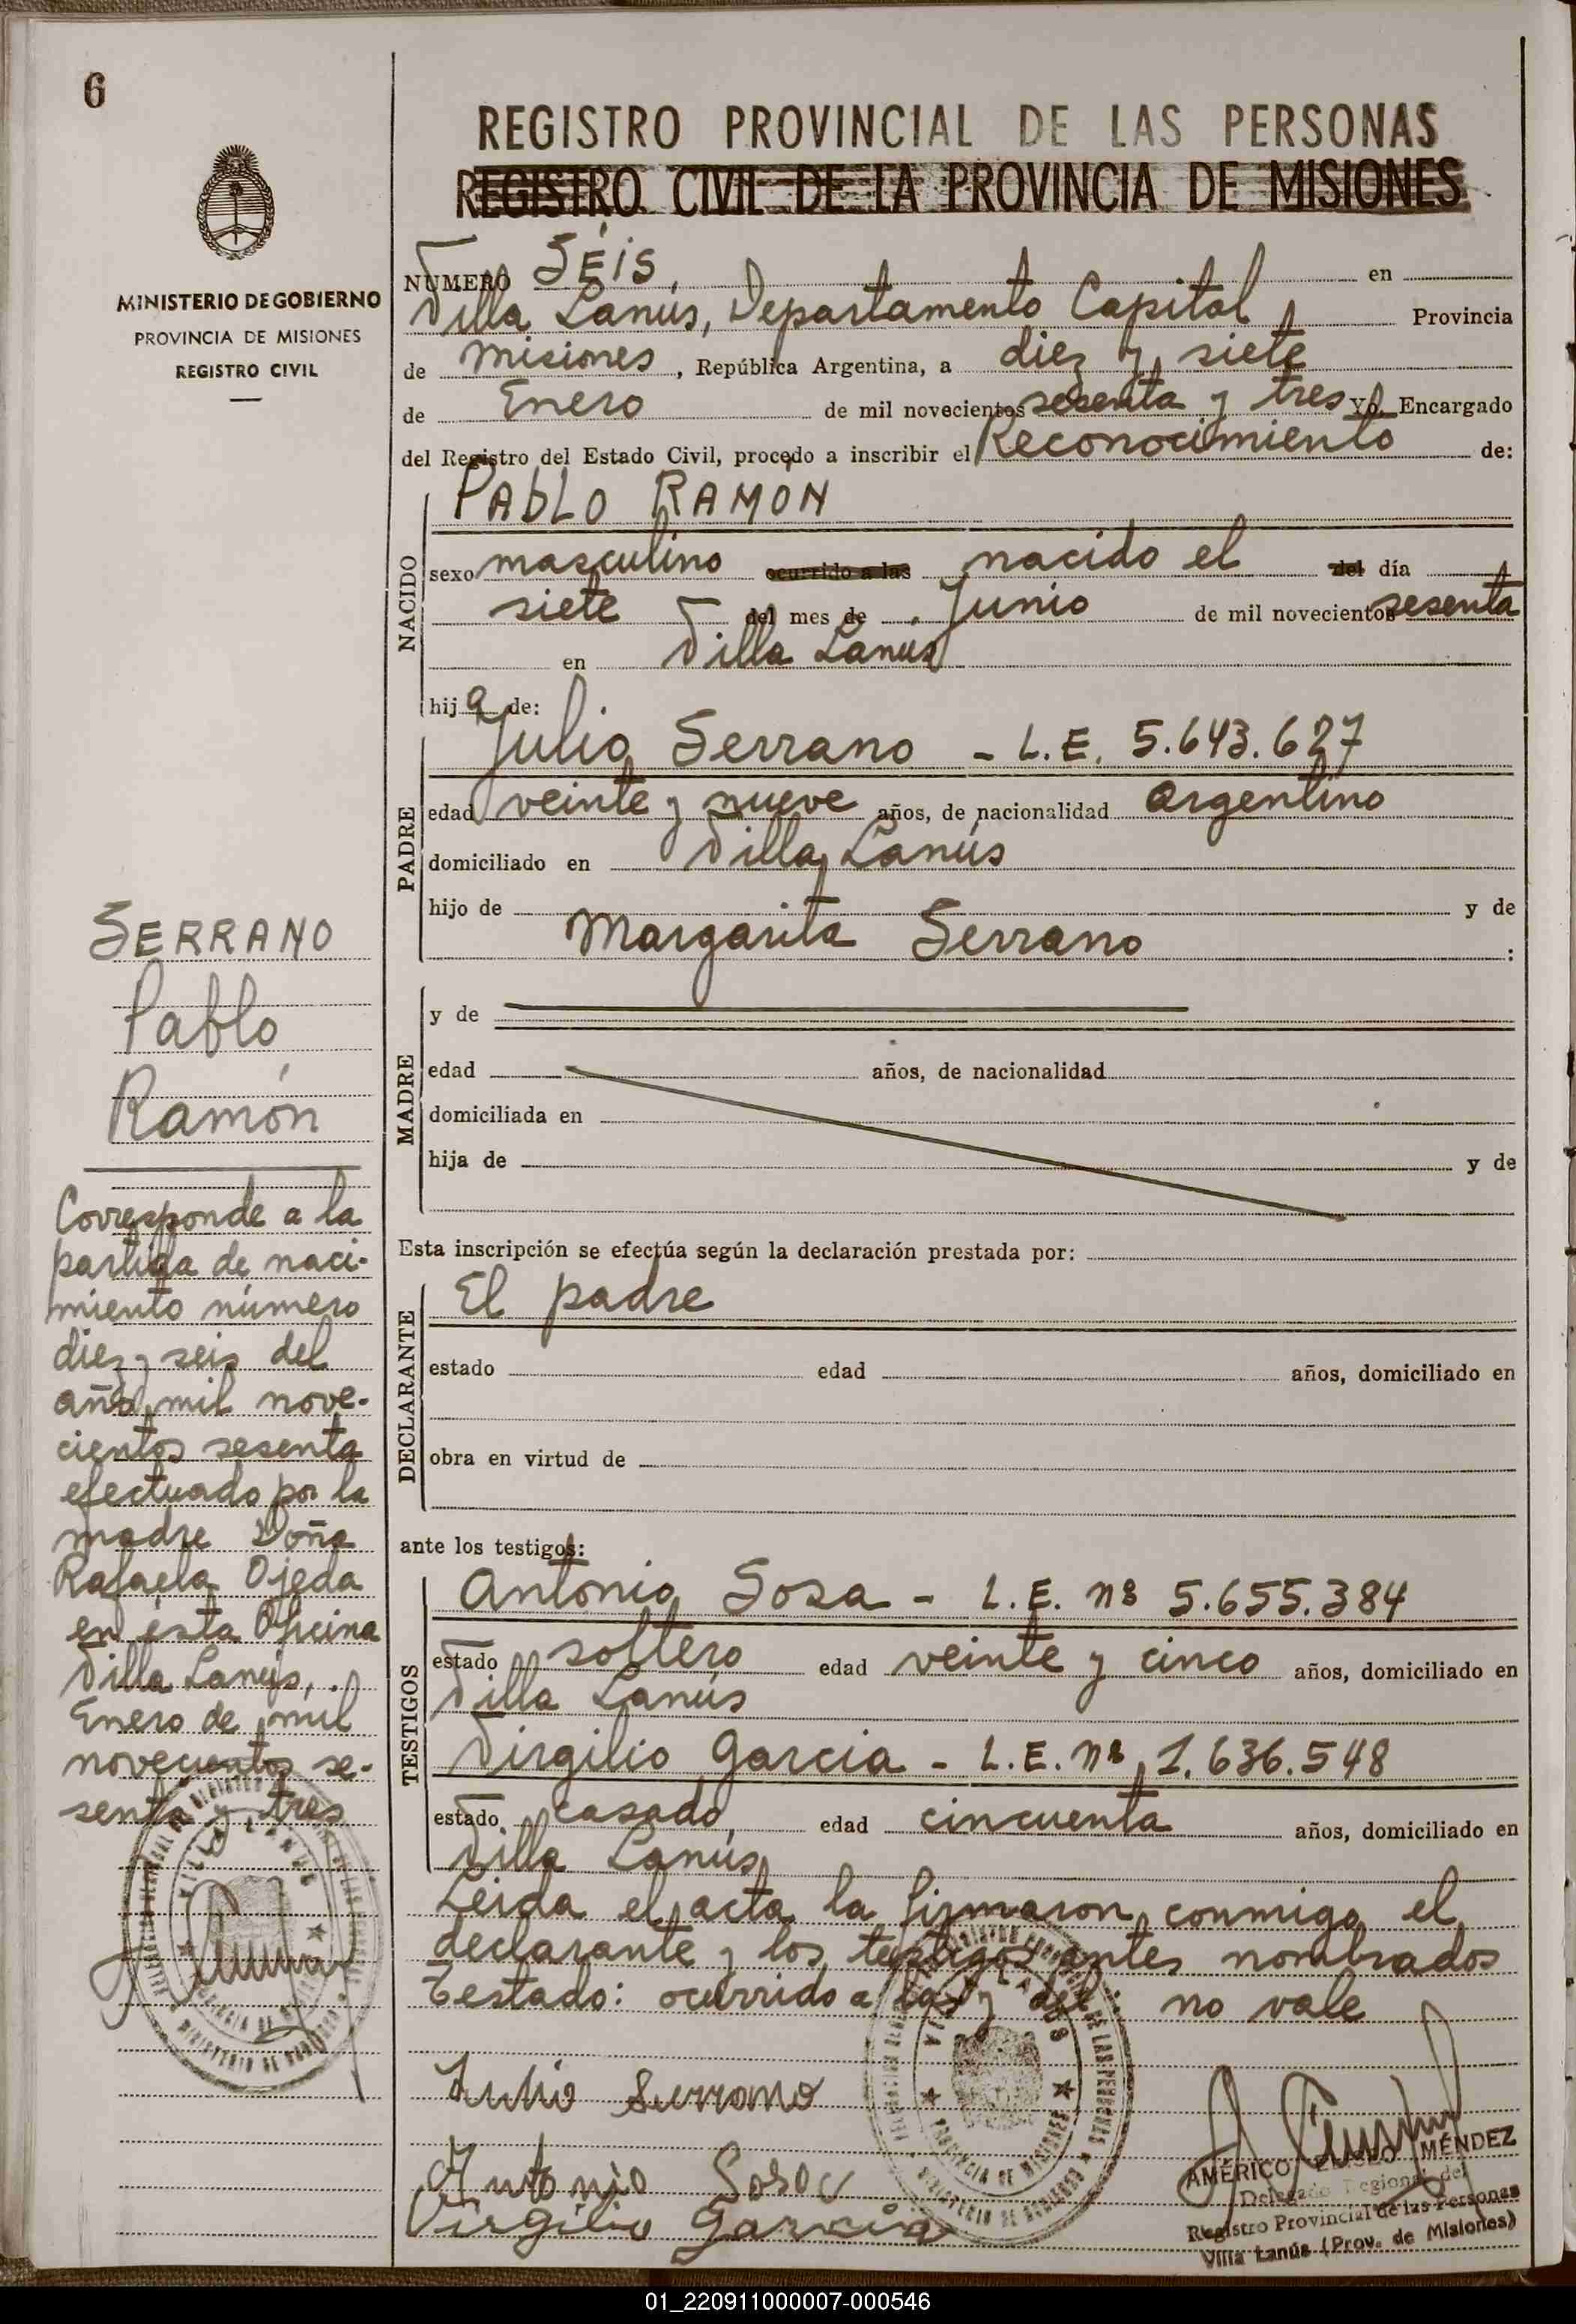 6
MINISTERIO DE GOBIERNO
PROVINCIA DE MISIONES
REGISTRO CIVIL
SERRANO
Pablo
Ramón
Corresponde a la
partida de naci-
miento número
diez y seis del
año mil nove-
cientos sesenta
efectuado por la
madre Doña
Rafaela Ojeda
en ésta Oficina
Villa Lanús,
Enero de mil
novecientos se-
senta y tres
REGISTRO PROVINCIAL DE LAS PERSONAS
REGISTRO CIVIL DE LA PROVINCIA DE MISIONES
NUMERO SEIS, en
Villa Lanús, Departamento Capital, Provincia
de Misiones, República Argentina, a diez y siete
de Enero de mil novecientos sesenta y tres yo, Encargado
del Registro del Estado Civil, procedo a inscribir el Reconocimiento de:
NACIDO
PABLO RAMÓN
sexo masculino ocurrido a las nacido el del día
siete del mes de Junio de mil novecientos sesenta
en Villa Lanús
hijo de:
PADRE
Julio Serrano - L.E. 5.643.627
edad veinte y nueve años, de nacionalidad Argentino
domiciliado en Villa Lanús
hijo de y de
Margarita Serrano :
MADRE
y de
edad años, de nacionalidad
domiciliada en
hija de y de
Esta inscripción se efectúa según la declaración prestada por:
DECLARANTE
El padre
estado edad años, domiciliado en
obra en virtud de
ante los testigos:
TESTIGOS
Antonio Sosa - L.E. nº 5.655.384
estado soltero edad veinte y cinco años, domiciliado en
Villa Lanús
Virgilio Garcia - L.E. nº 1.636.548
estado casado, edad cincuenta años, domiciliado en
Villa Lanús
Leida el acta la firmaron conmigo el
declarante y los testigos antes nombrados
Testado: ocurrido a las y del: no vale
Julio Serrano
Antonio Sosa
Virgilio Garcia
VILLA LANUS
PROVINCIA DE MISIONES
MINISTERIO DE GOBIERNO
AMÉRICO ELISEO MÉNDEZ
Delegado Regional del
Registro Provincial de las Personas
Villa Lanús (Prov. de Misiones)
01_220911000007-000546